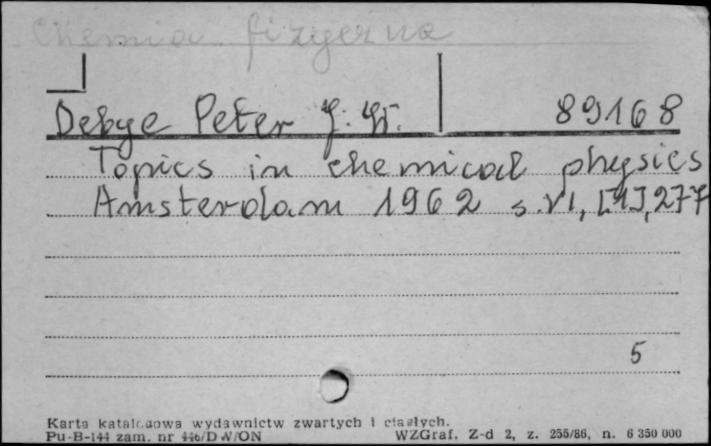 Chemia fizyczna
Debye Peter J. W. 89168
Topics in chemical physics
Amsterdam 1962 s. VI, [1], 277
5
Karta katalogowa wydawnictw zwartych i ciągłych.
Pu-B-144 zam. nr 446/DW/ON WZGraf. Z-d 2, z. 255/86, n. 6 350 000